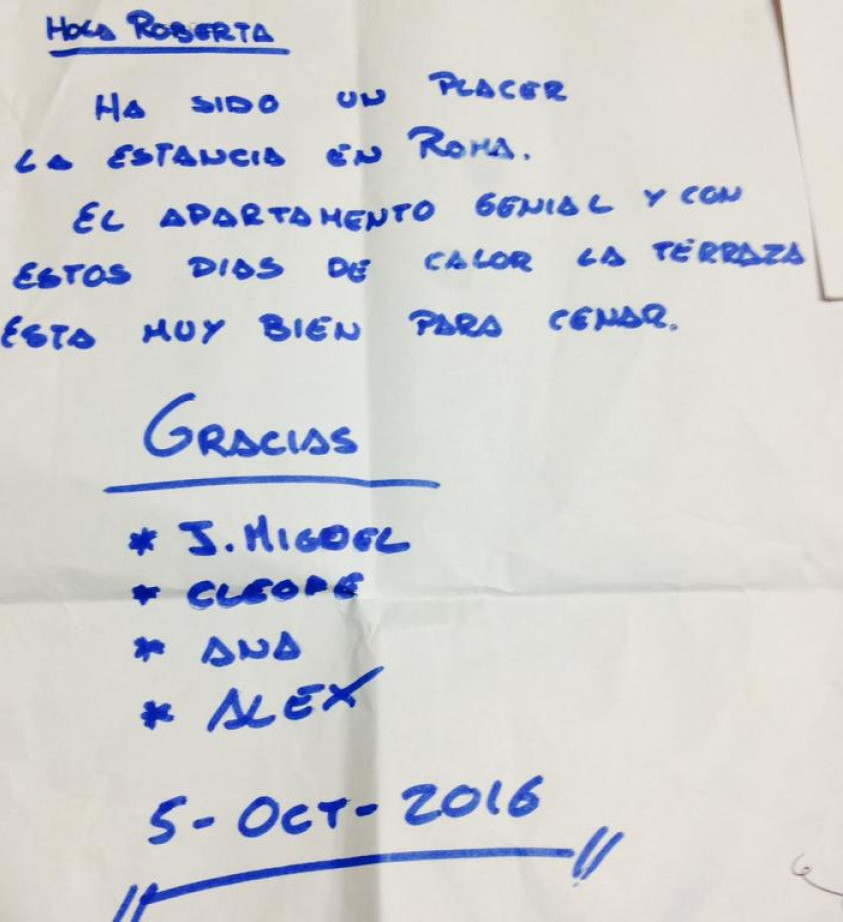 HOLA ROBERTA
HA SIDO UN PLACER
LA ESTANCIA EN ROMA.
EL APARTAMENTO GENIAL Y CON
ESTOS DIAS DE CALOR LA TERRAZA
ESTA MUY BIEN PARA CENAR.
GRACIAS
* J. MIGUEL
* CLEOFE
* ANA
* ALEX
5-OCT-2016